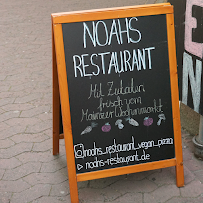 NOAHS
RESTAURANT
Mit Zutaten
frisch vom
Mainzer Wochenmarkt
noahs_restaurant_vegan_pizza
noahs-restaurant.de